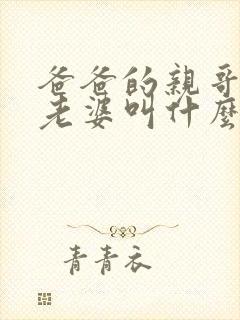 爸爸的親哥
老婆叫什麼
青青衣